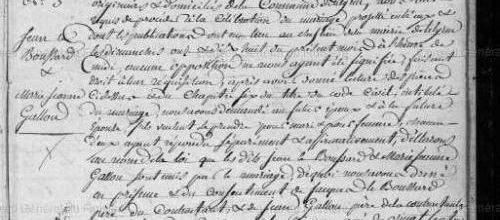 originaires & domiciliés de la Commune
requis de procéder à la célébration du mariage projetté entr'eux &
Jean Le
Boussard
&
Marie Jeanne
Gallou
dont les publications ont eu lieu au chef lieu de la mairie
les dimanches onze & dix huit du présent mois à l'heure de
midi aucune opposition ne nous ayant été signifiée, faisant
droit à leur réquisition, après avoir donné lecture des pièces
Cidessus & du Chapitre six du titre du code Civil, intitulé
du mariage, nous avons demandé au futur époux & à la future
épouse s'ils veulent se prendre pour mari & pour femme, chacun
d'eux ayant répondu séparément & affirmativement, déclarons
au nom de la loi que les dits Jean Le Boussard & Marie Jeanne
Gallou sont unis par le mariage, de quoi nous avons dressé
en présence & du consentement de Jacques Le Boussard
père du Contractant, & de Jean Gallou père de la contractante